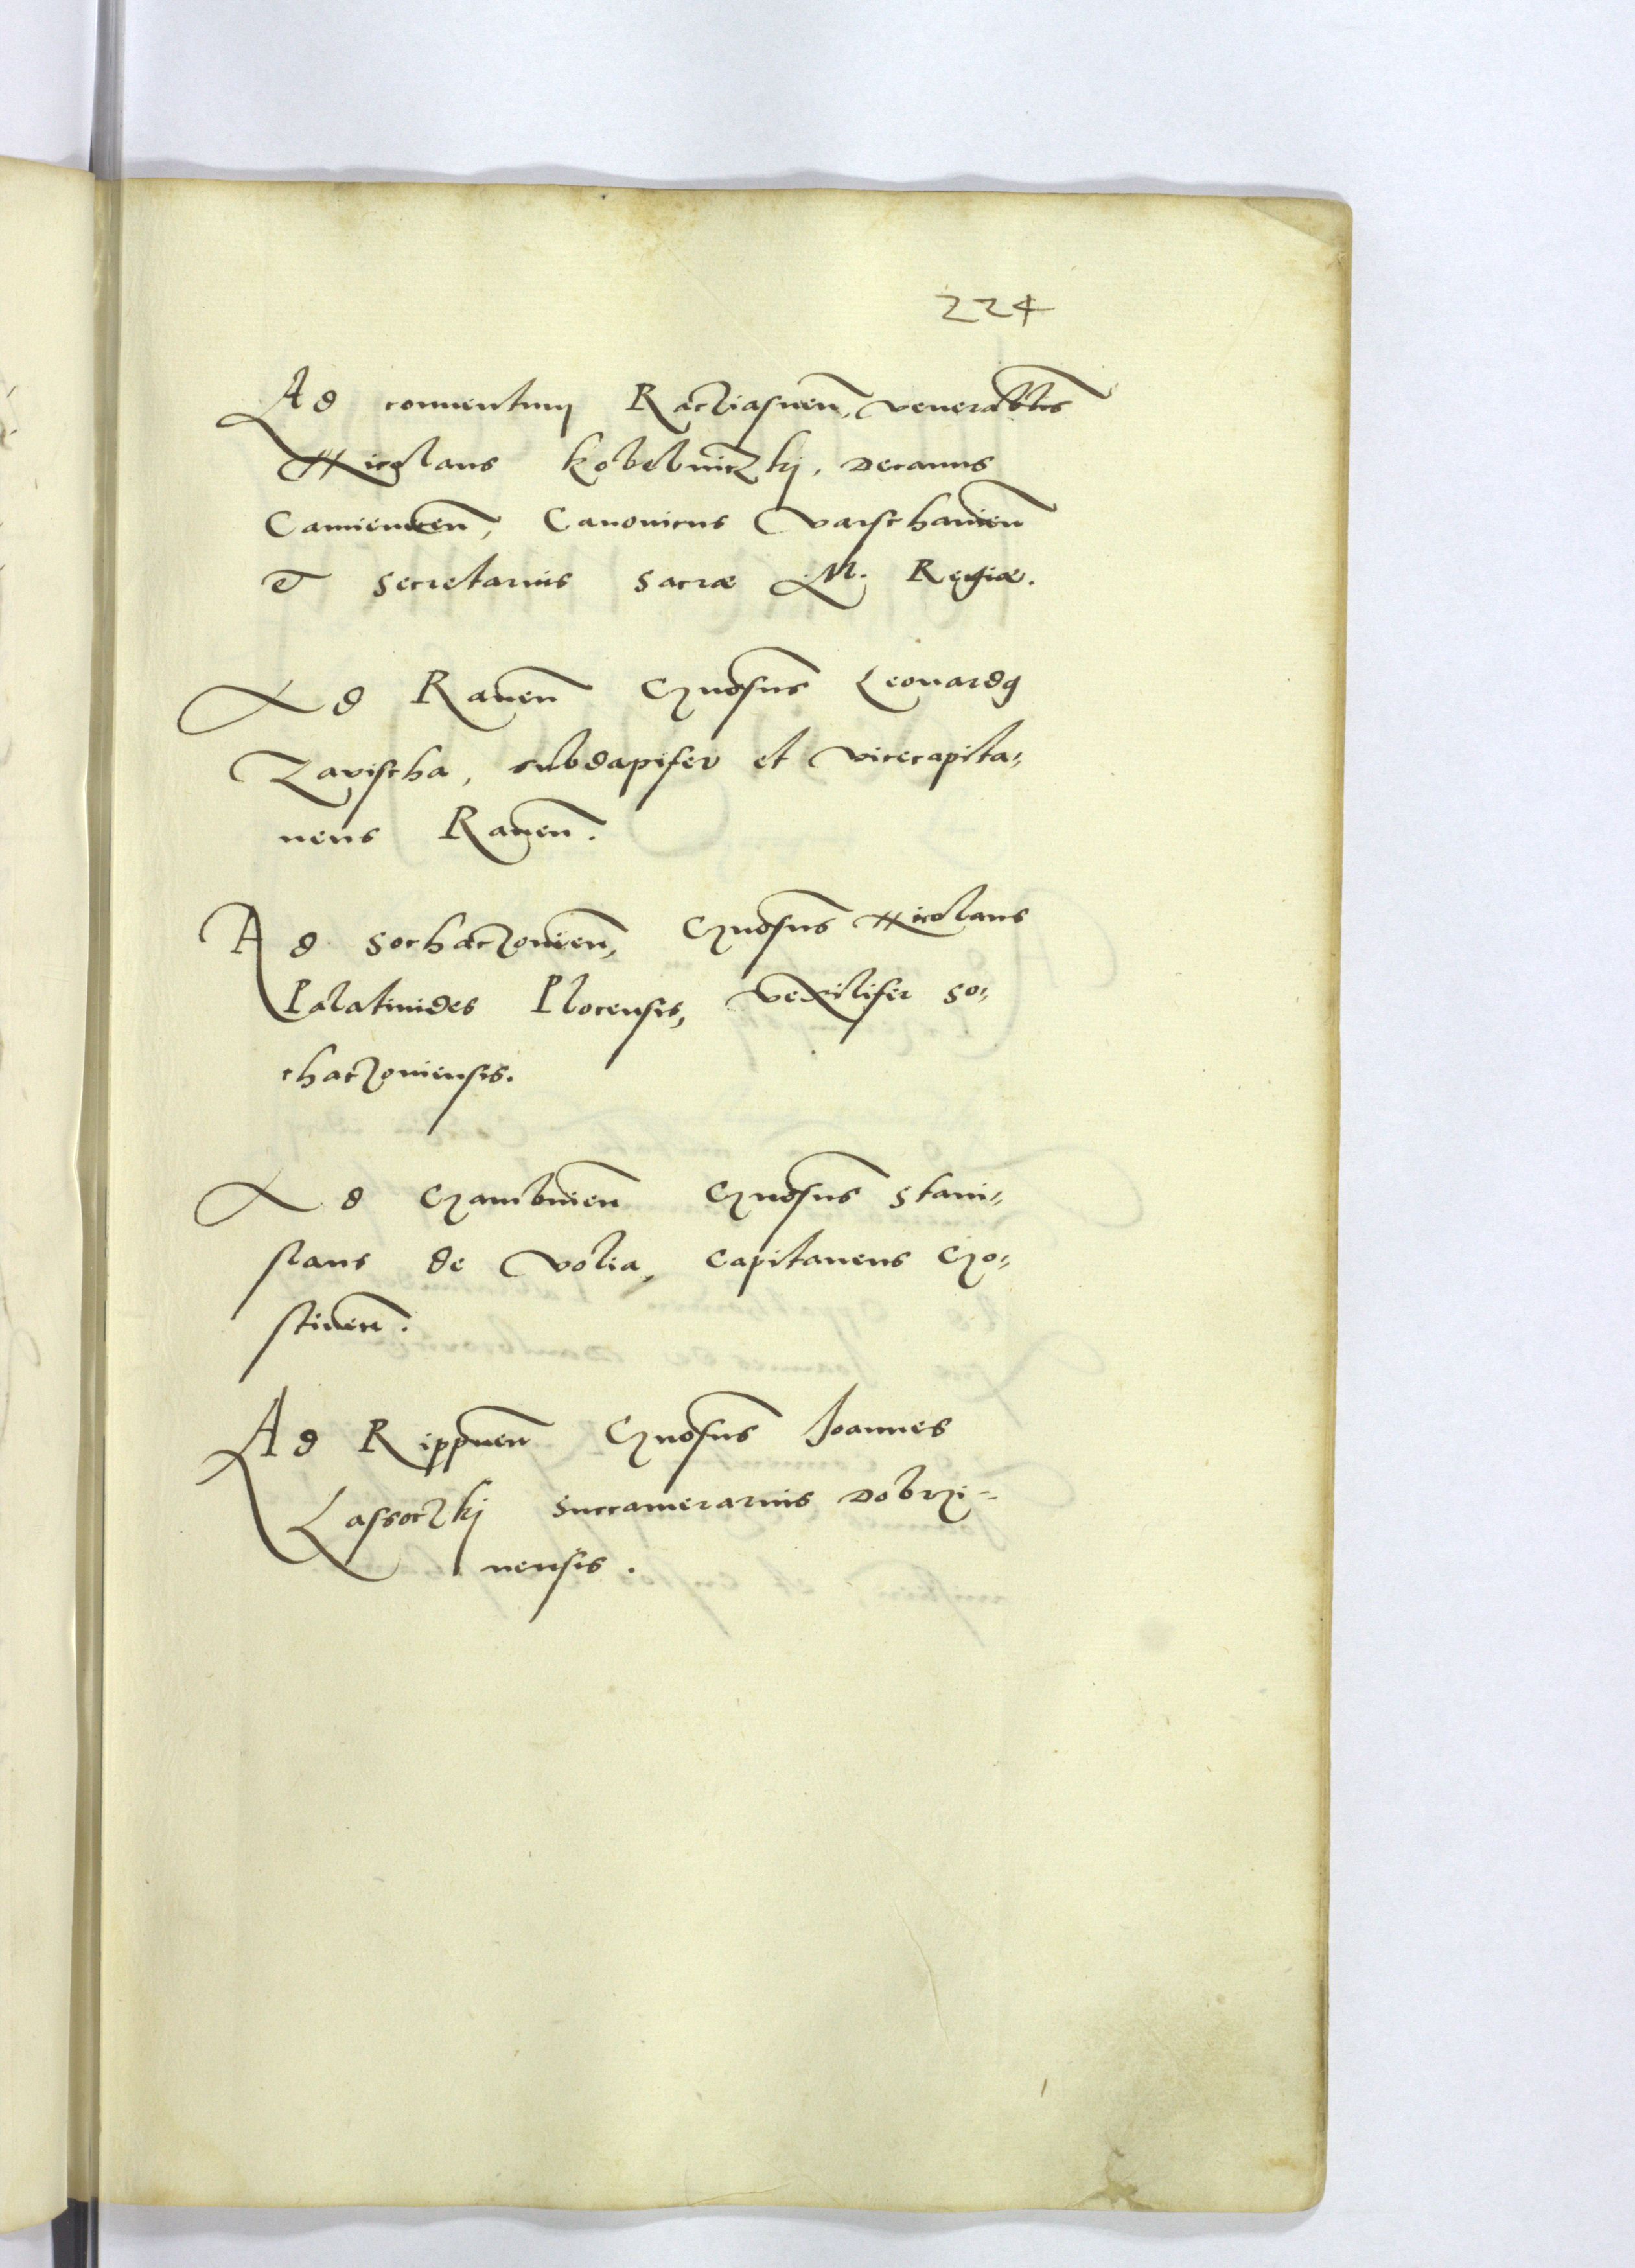 224
Ad conuentum Racziasnen, venerabilis
Nicolaus Kobelniczkj, Decanus
Camienecen, Canonicus Varschauien
et Secretarius Sacræ M. Regiæ.
Ad Rauen Gnosus Leonardus
Zavischa, subdapifer et vicecapita,
neus Rauen.
Ad Sochaczouien, Gnosus Nicolaus
Palatinides Plocensis, vexilifer so,
chaczouiensis.
Ad Gambinien Gnosus Stani,
slaus de Volia, Capitaneus Go,
stinen.
Ad Rippnen Gnosus Joannes
Lassoczkj Succamerarius Dobrzi-
nensis.